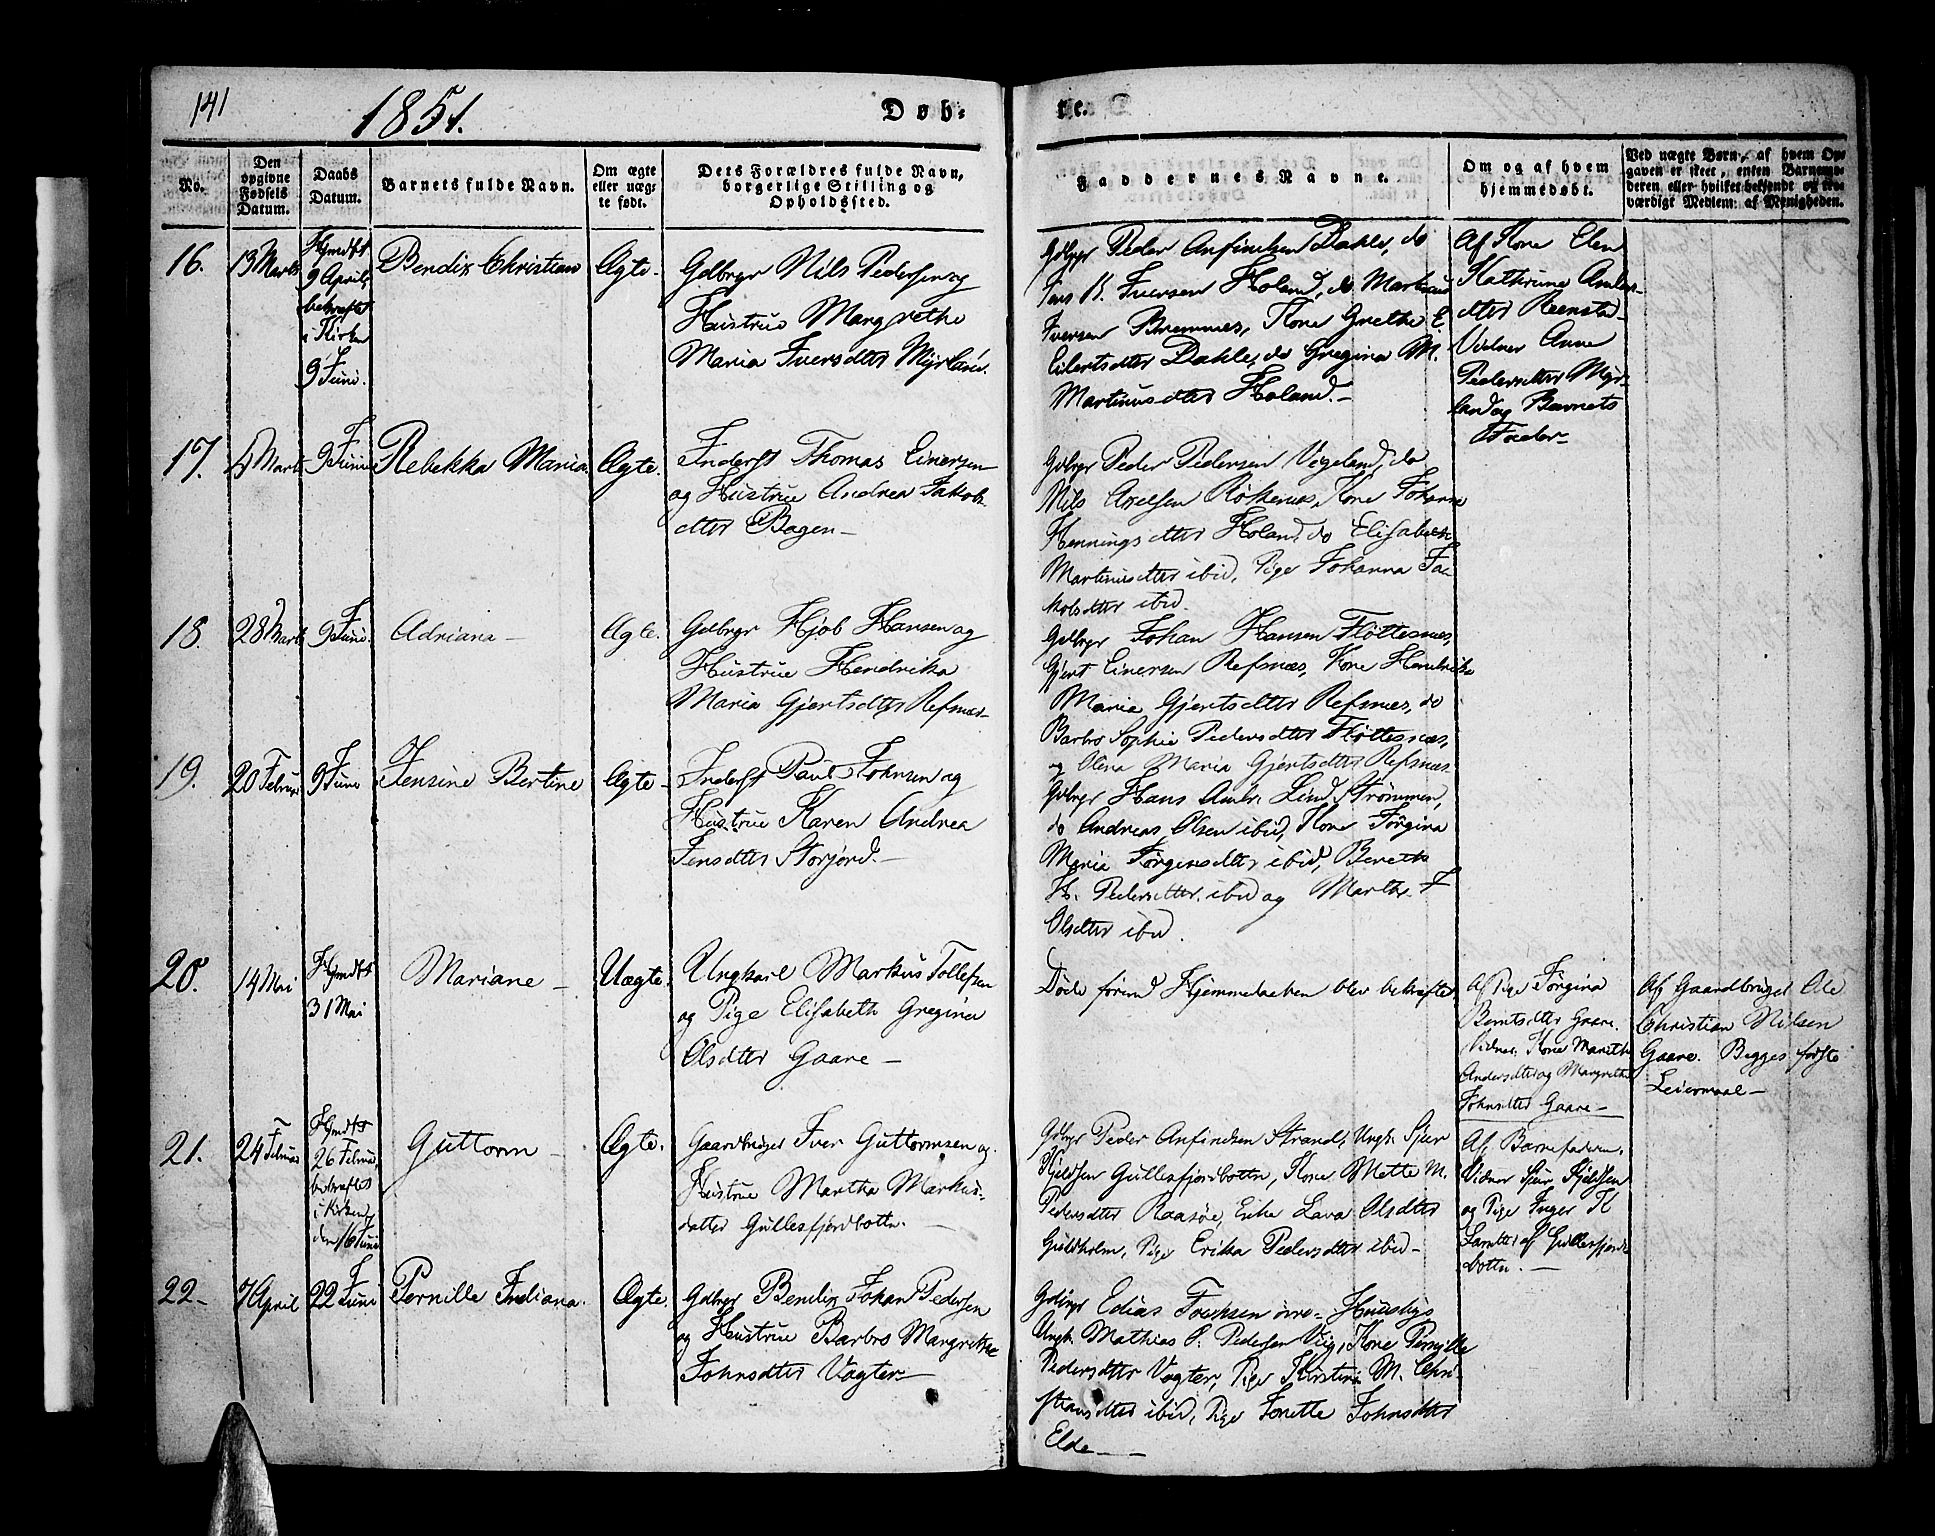 141
1851.
Døb-
te.
No.
Den opgivne Fødsels Datum.
Daabs Datum.
Barnets fulde Navn.
Om ægte eller uægte født.
Dets Forældres fulde Navn, borgerlige Stilling og Opholdssted.
Faddernes Navne.
Om og af hvem hjemmedøbt.
Ved uægte Børn, af hvem Opgaven er skeet, enten Barnemoderen eller hvilket bekjendt og troværdigt Medlem af Menigheden.
16.
13 Marts
Hjmdbt
9 April,
bekræftet
i Kirken
9 Juni.
Bendix Christian
Ægte.
Gdbrgr Nils Pedersen og
Hustrue Margrethe
Maria Iversdtter Myrland.
Gdbrgr Peder Anfindsen Dahle, do
Jens B. Iversen Holand, do Martinus
Iversen Bremnes, Kone Grethe E.
Eilertsdtter Dahle, do Gregina M.
Martinusdtter Holand. –
Af Kone Elen
Kathrine Anders-
dtter Reensted
Vidner Anne
Pedersdtter Myr-
land og Barnets
Fader –
17.
4 Marts
9 Juni
Rebekka Maria.
Ægte.
Inderst Thomas Einersen
og Hustrue Andrea Jakobs-
dtter Bogen –
Gdbrgr Peder Pedersen Vigeland, do
Nils Axelsen Røkenes, Kone Johanna
Henningsdtter Holand, do Elisabeth
Martinusdtter ibid, Pige Johanna Ja-
kobsdtter ibid.
18.
28 Marts
9 Juni.
Adriana –
Ægte.
Gdbrgr Hjob Hansen og
Hustrue Hendrika
Maria Gjertsdtter Refsnæs –
Gdbrgr Johan Hansen Fløttesnæs,
Gjert Einersen Refsnæs, Kone Hendrika
Maria Gjertsdtter Refsnæs, do
Barbro Sophie Pedersdtter Fløttesnæs,
og Olena Maria Gjertsdtter Refsnæs
19.
20 Februar
9 Juni
Jensine Bertine
Ægte –
Inderst Paul Johnsen og
Hustrue Karen Andrea
Jensdtter Storjord. –
Gdbrgr Hans Andr. Lind Strømmen,
do Andreas Olsen ibid, Kone Jørgina
Maria Jørgensdtter ibid, Bereth
H. Pedersdtter ibid og Martha J
Olsdtter ibid.
20.
14 Mai
Hjmdbt
31 Mai
Mariane –
Uægte.
Ungkarl Markus Tollefsen
og Pige Elisabeth Gregina
Olsdtter Gaare –
Døde førend Hjemmedaaben blev bekræftet
Af Pige Jørgina
Berntsdtter Gaare.
Vidner: Kone Mareth
Andersdtter og Margrethe
Johnsdtter Gaare –
Af Gaardbruger Ole
Christian Nilsen
Gaare. Begges første
Leiermaal –
21.
24 Februar
Hjmdbt
26 Februar,
bekræftet
i Kirken
den 16 Juni
Guttorm –
Ægte.
Gaardbruger Iver Guttormsen og
Hustrue Martha Markus-
datter Gullesfjordbotn. –
Gdbrgr Peder Anfindsen Strand, Ungk. Sjur
Kjeldsen Gullesfjordbotn, Kone Mette M.
Pedersdtter Raasøe, Enke Lava Olsdtter
Guldholm, Pige Erika Pedersdtter ibid –
Af Barnefaderen.
Vidner Sjur Kjeldsen
og Pige Inger Kl
Larsdtter af Gullesfjord-
botn. –
22 –
7 April
22 Juni
Pernille Indiana.
Ægte.
Gdbrgr Bendix Johan Pedersen
og Hustrue Barbro Margrethe
Johnsdtter Vogter –
Gdbrgr Edias øvre- Husby,
Ungk. Mathias P. Pedersen Viig, Kone Pernille
Pedersdtter Vogter, Pige Kirstina M. Chri-
stiansdtter ibid, Pige Jonette Johnsdtter
Elde –